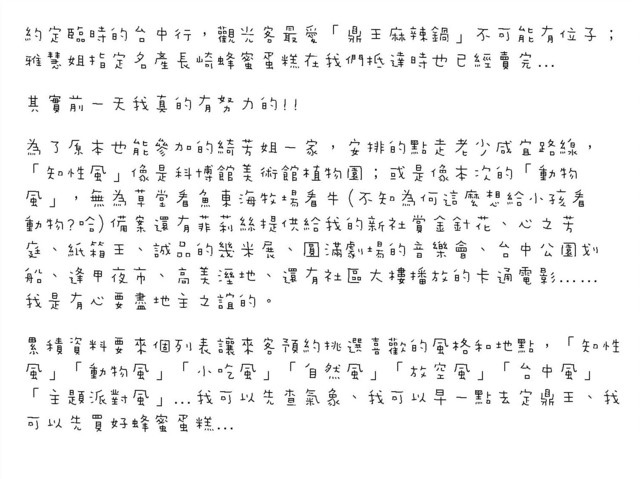 約定臨時的台中行，觀光客最愛「鼎王麻辣鍋」不可能有位子；
雅慧姐指定名產長崎蜂蜜蛋糕在我們抵達時也已經賣完...
其實前一天我真的有努力的!!
為了原本也能參加的綺芳姐一家，安排的點走老少咸宜路線，
「知性風」像是科博館美術館植物園；或是像本次的「動物
風」，無為草堂看魚東海牧場看牛(不知為何這麼想給小孩看
動物?哈)備案還有菲莉絲提供給我的新社賞金針花、心之芳
庭、紙箱王、誠品的幾米展、圓滿劇場的音樂會、台中公園划
船、逢甲夜市、高美溼地、還有社區大樓播放的卡通電影......
我是有心要盡地主之誼的。
累積資料要來個列表讓來客預約挑選喜歡的風格和地點，「知性
風」「動物風」「小吃風」「自然風」「放空風」「台中風」
「主題派對風」...我可以先查氣象、我可以早一點去定鼎王、我
可以先買好蜂蜜蛋糕...